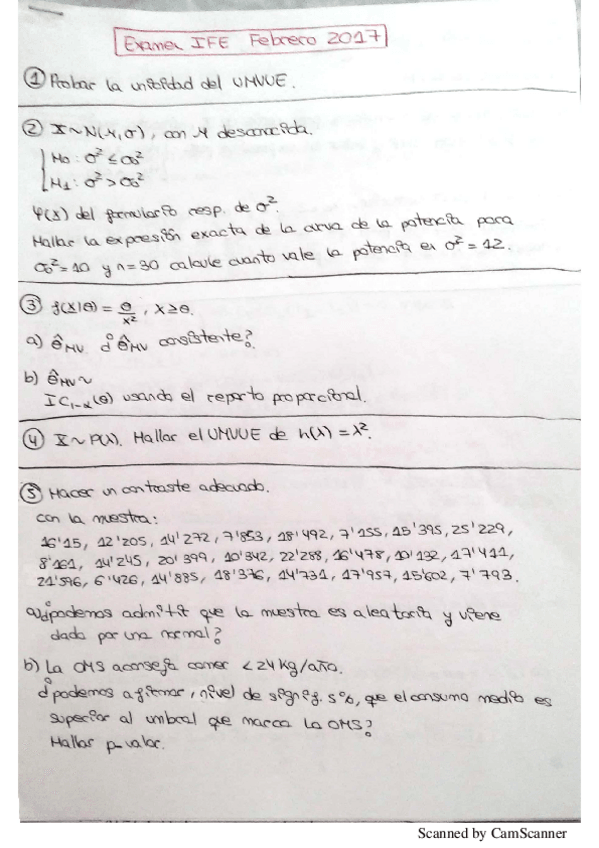 Examen IFE Febrero 2017
① Probar la unicidad del UMVUE.
② X~N(μ,σ), con μ desconocida.
H₀ : σ² ≤ σ₀²
H₁ : σ² > σ₀²
φ(x) del formulario resp. de σ².
Hallar la expresión exacta de la curva de la potencia para
σ₀²=10 y n=30 calcule cuanto vale la potencia en σ²=12.
③ f(x|θ) = θ/x² , x≥θ.
a) θ̂MV. ¿θ̂MV consistente?
b) θ̂MV ~
IC₁₋α(θ) usando el reparto proporcional.
④ X~P(λ). Hallar el UMVUE de h(λ)=λ².
⑤ Hacer un contraste adecuado.
Con la muestra:
16'15, 12'205, 14'272, 7'853, 18'492, 7'155, 15'395, 25'229,
8'161, 14'245, 20'399, 10'342, 22'288, 16'478, 10'132, 17'411,
21'596, 6'426, 14'885, 18'376, 14'731, 17'957, 15'602, 7'793.
a) ¿podemos admitir que la muestra es aleatoria y viene
dada por una normal?
b) La OMS aconseja comer <24kg/año.
¿podemos afirmar, nivel de signif. 5%, que el consumo medio es
superior al umbral que marca la OMS?
Hallar p-valor.
Scanned by CamScanner